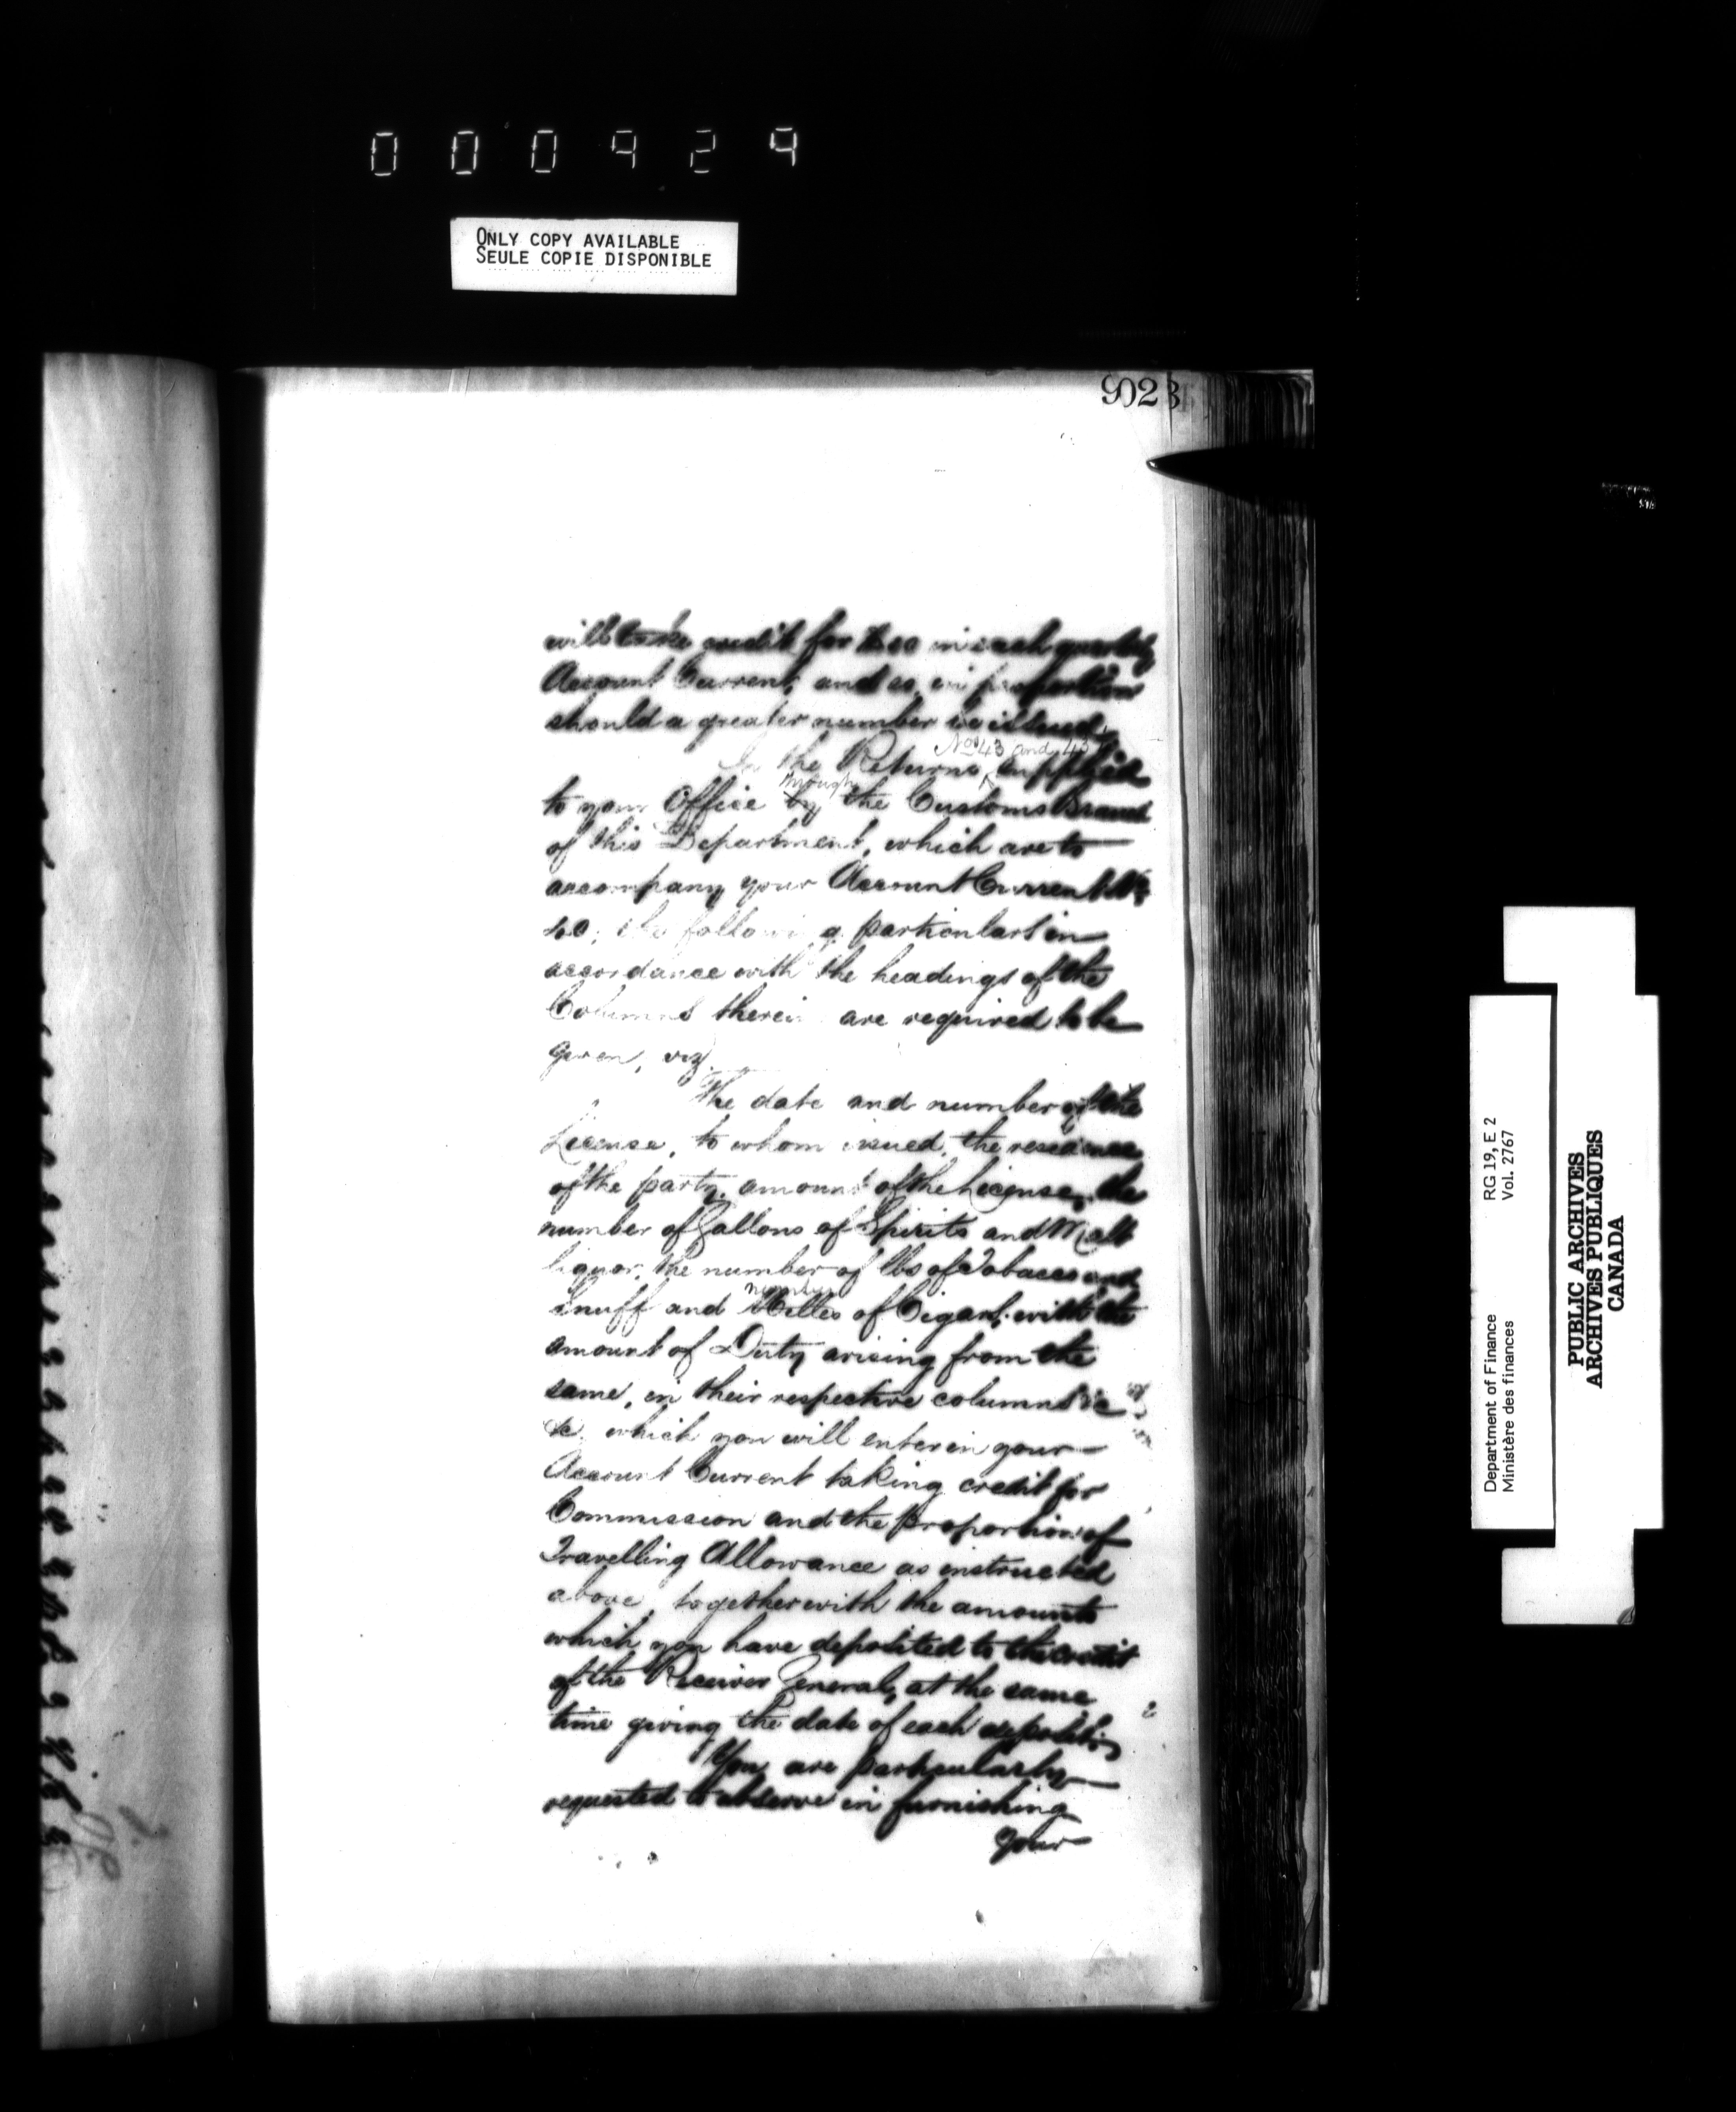 000929
ONLY COPY AVAILABLE
SEULE COPIE DISPONIBLE
902
will take credit for in each quarterly
Account Current, and so in proportion
should a greater number be issued.
Nos 43 and 43
In the Returns supplied
through
to your Office by the Customs Branch
of this Department, which are to
accompany your Account Current No
40, the following particulars in
accordance with the headings of the
Columns therein are required to be
given, viz.
The date and number of the
License, to whom issued, the residence
of the party, amount of the License, the
number of Gallons of Spirits and Malt
liquor, the number of lbs of Tobacco and
number
Snuff and Milles of Cigars, with the
amount of Duty arising from the
same, in their respective columns &c
&c, which you will enter in your
Account Current taking credit for
Commission and the proportion of
Travelling Allowance as instructed
above, together with the amounts
which you have deposited to the credit
of the Receiver General, at the same
time giving the date of each deposit.
You are particularly
requested to observe in furnishing
your
Department of Finance RG 19, E 2
Ministère des finances Vol. 2767
PUBLIC ARCHIVES
ARCHIVES PUBLIQUES
CANADA